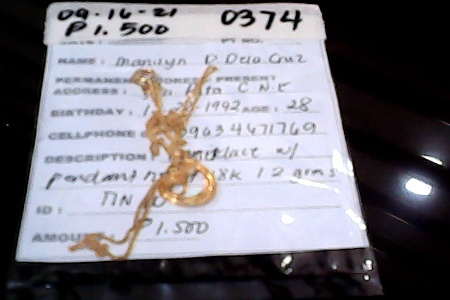 09-16-21 0374
₱1.500
NAME: Marilyn D. Dela Cruz
PERMANENT PRESENT
ADDRESS: Rita C.N.E
BIRTHDAY: -1992 AGE: 28
CELLPHONE 09634671769
DESCRIPTION necklace w/
pendant 18k 12 grms
TIN
ID:
AMOUNT ₱1.500